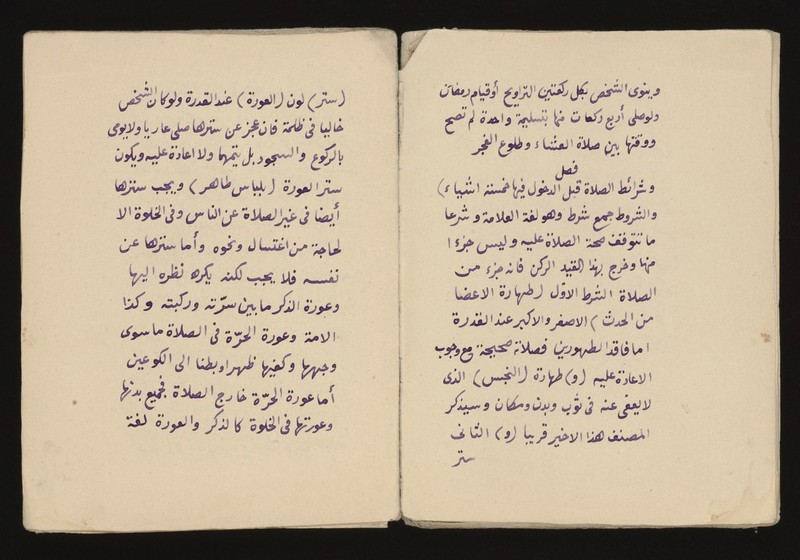 وينوى الشخص بكل ركعتين التراويح أو قيام رمضان
ولو صلى أربع ركعات منها بتسليمة واحدة لم تصح
ووقتها بين صلاة العشاء وطلوع الفجر
فصل
وشرائط الصلاة قبل الدخول فيها خمسة اشياء)
والشروط جمع شرط وهو لغة العلامة وشرعا
ما تتوقف صحة الصلاة عليه وليس جزءا
منها وخرج بهذا القيد الركن فانه جزء من
الصلاة الشرط الاول (طهارة الاعضا
من الحدث) الاصغر والاكبر عند القدرة
اما فاقد الطهورين فصلاته صحيحة مع وجوب
الاعادة عليه (و) طهارة (النجس) الذى
لا يعفى عنه فى ثوب وبدن ومكان وسيذكر
المصنف هذا الاخير قريبا (و) الثانى
ستر
(ستر) لون (العورة) عند القدرة ولو كان الشخص
خاليا فى ظلمة فان عجز عن سترها صلى عاريا ولا يومى
بالركوع والسجود بل يتمهما ولا اعادة عليه ويكون
ستر العورة (بلباس طاهر) ويجب سترها
أيضا فى غير الصلاة عن الناس وفى الخلوة الا
لحاجة من اغتسال ونحوه وأما سترها عن
نفسه فلا يجب لكنه يكره نظره اليها
وعورة الذكر ما بين سرّته وركبته وكذا
الامة وعورة الحرّة فى الصلاة ما سوى
وجهها وكفيها ظهرا وبطنا الى الكوعين
أما عورة الحرّة خارج الصلاة فجميع بدنها
وعورتها فى الخلوة كالذكر والعورة لغة